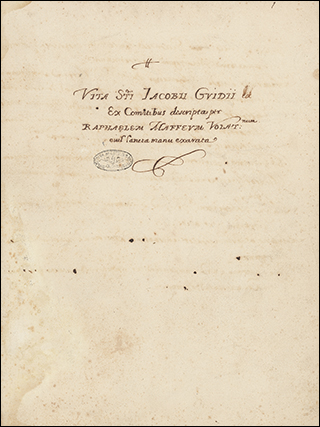 VITA STI IACOBII GVIDII
Ex Comitibus descripta per
RAPHAELEM MAFFEVM VOLAT: num
eius sancta manu exarata